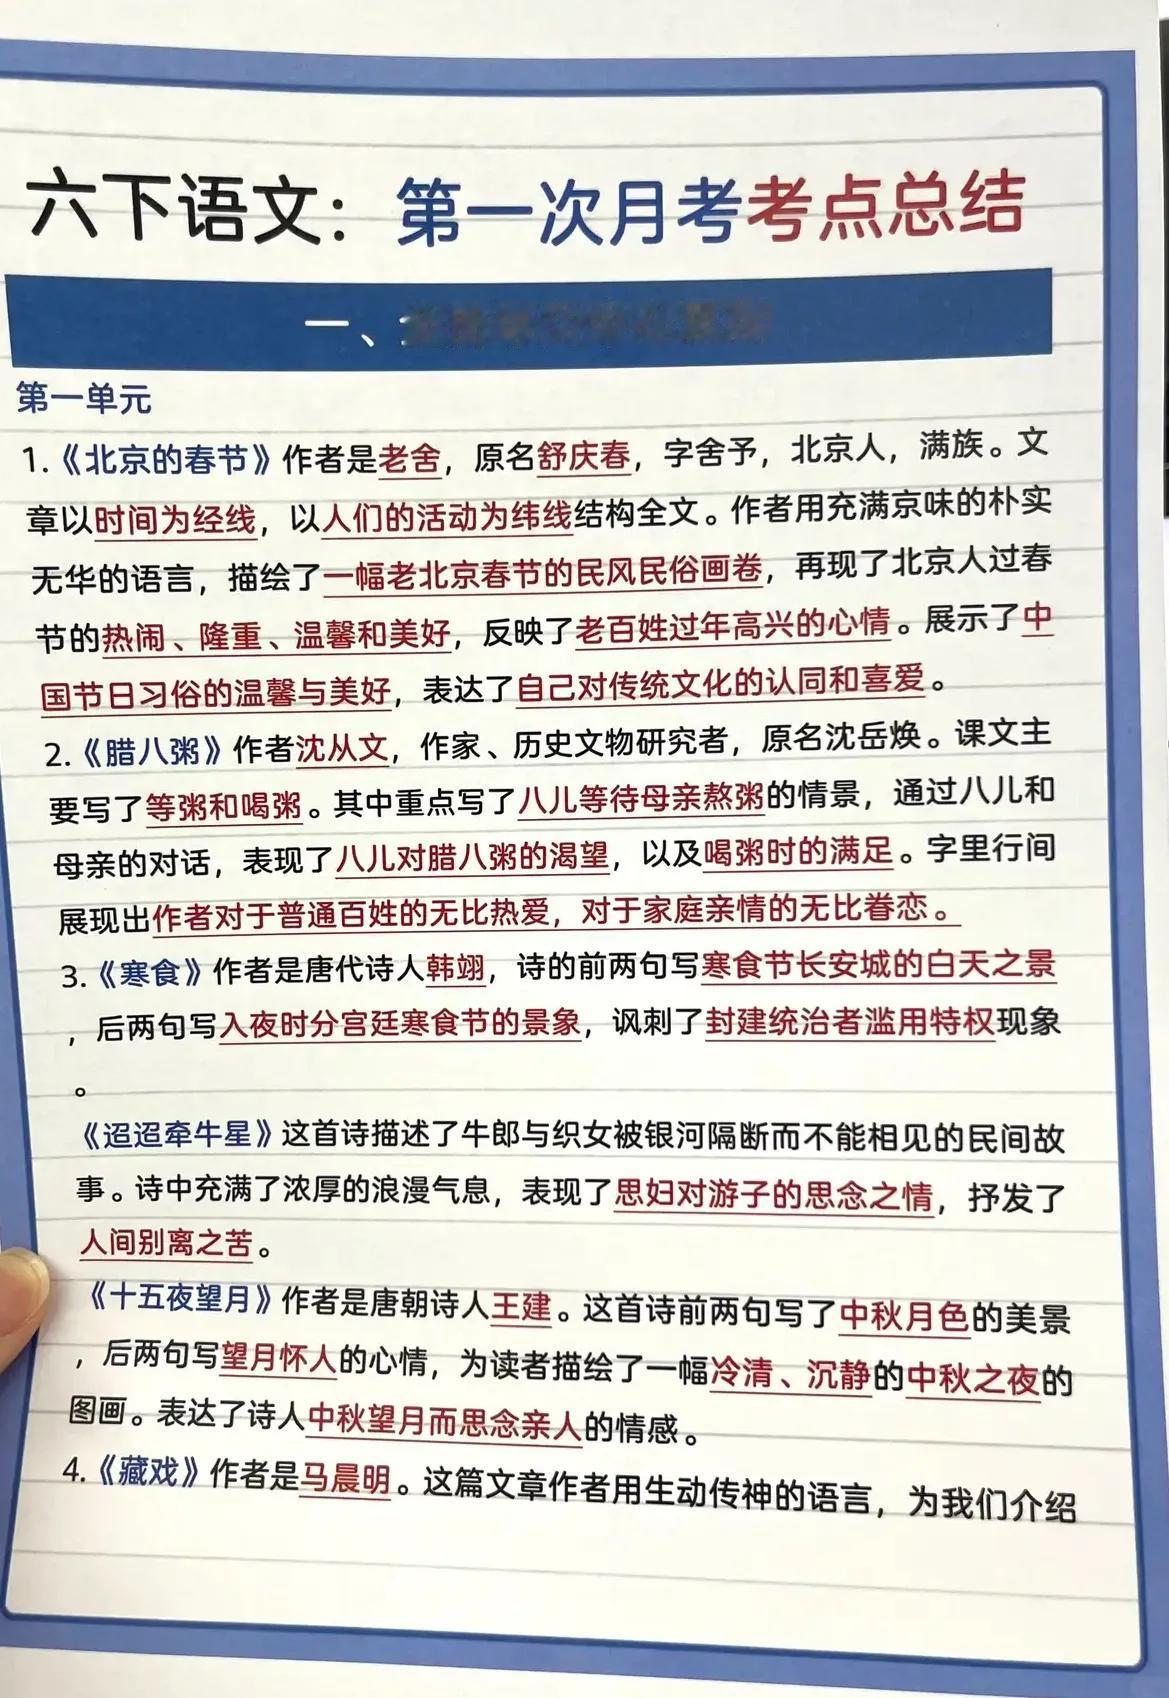 六下语文：第一次月考考点总结
一、
第一单元
1.《北京的春节》作者是老舍，原名舒庆春，字舍予，北京人，满族。文
章以时间为经线，以人们的活动为纬线结构全文。作者用充满京味的朴实
无华的语言，描绘了一幅老北京春节的民风民俗画卷，再现了北京人过春
节的热闹、隆重、温馨和美好，反映了老百姓过年高兴的心情。展示了中
国节日习俗的温馨与美好，表达了自己对传统文化的认同和喜爱。
2.《腊八粥》作者沈从文，作家、历史文物研究者，原名沈岳焕。课文主
要写了等粥和喝粥。其中重点写了八儿等待母亲熬粥的情景，通过八儿和
母亲的对话，表现了八儿对腊八粥的渴望，以及喝粥时的满足。字里行间
展现出作者对于普通百姓的无比热爱，对于家庭亲情的无比眷恋。
3.《寒食》作者是唐代诗人韩翃，诗的前两句写寒食节长安城的白天之景
，后两句写入夜时分宫廷寒食节的景象，讽刺了封建统治者滥用特权现象
。
《迢迢牵牛星》这首诗描述了牛郎与织女被银河隔断而不能相见的民间故
事。诗中充满了浓厚的浪漫气息，表现了思妇对游子的思念之情，抒发了
人间别离之苦。
《十五夜望月》作者是唐朝诗人王建。这首诗前两句写了中秋月色的美景
，后两句写望月怀人的心情，为读者描绘了一幅冷清、沉静的中秋之夜的
图画。表达了诗人中秋望月而思念亲人的情感。
4.《藏戏》作者是马晨明。这篇文章作者用生动传神的语言，为我们介绍